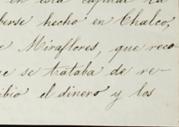 en esta capital ha
berse hecho en Chalco,
Miraflores, que reco
se trataba de re-
cibio el dinero y los